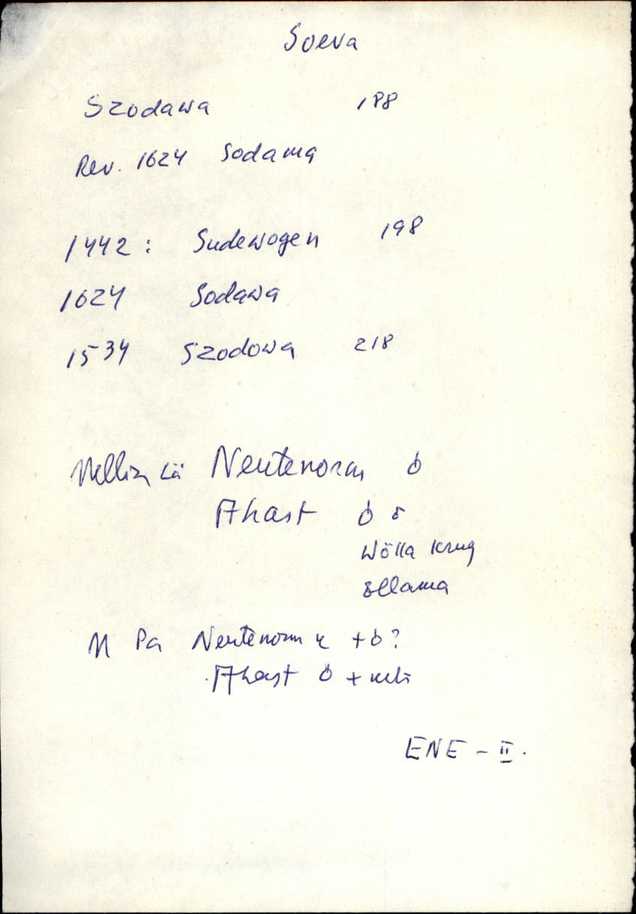 Soeva
Szodawa 188
Rev. 1624 Sodama
1442 : Sudewogen 198
1624 Sodawa
1534 Szodowa 218
Nellin kä Neutenorm ó
Ahast ó
Wölla krug
M Pa Neutenorm + ó?
Ahast ó +
ENE - II.